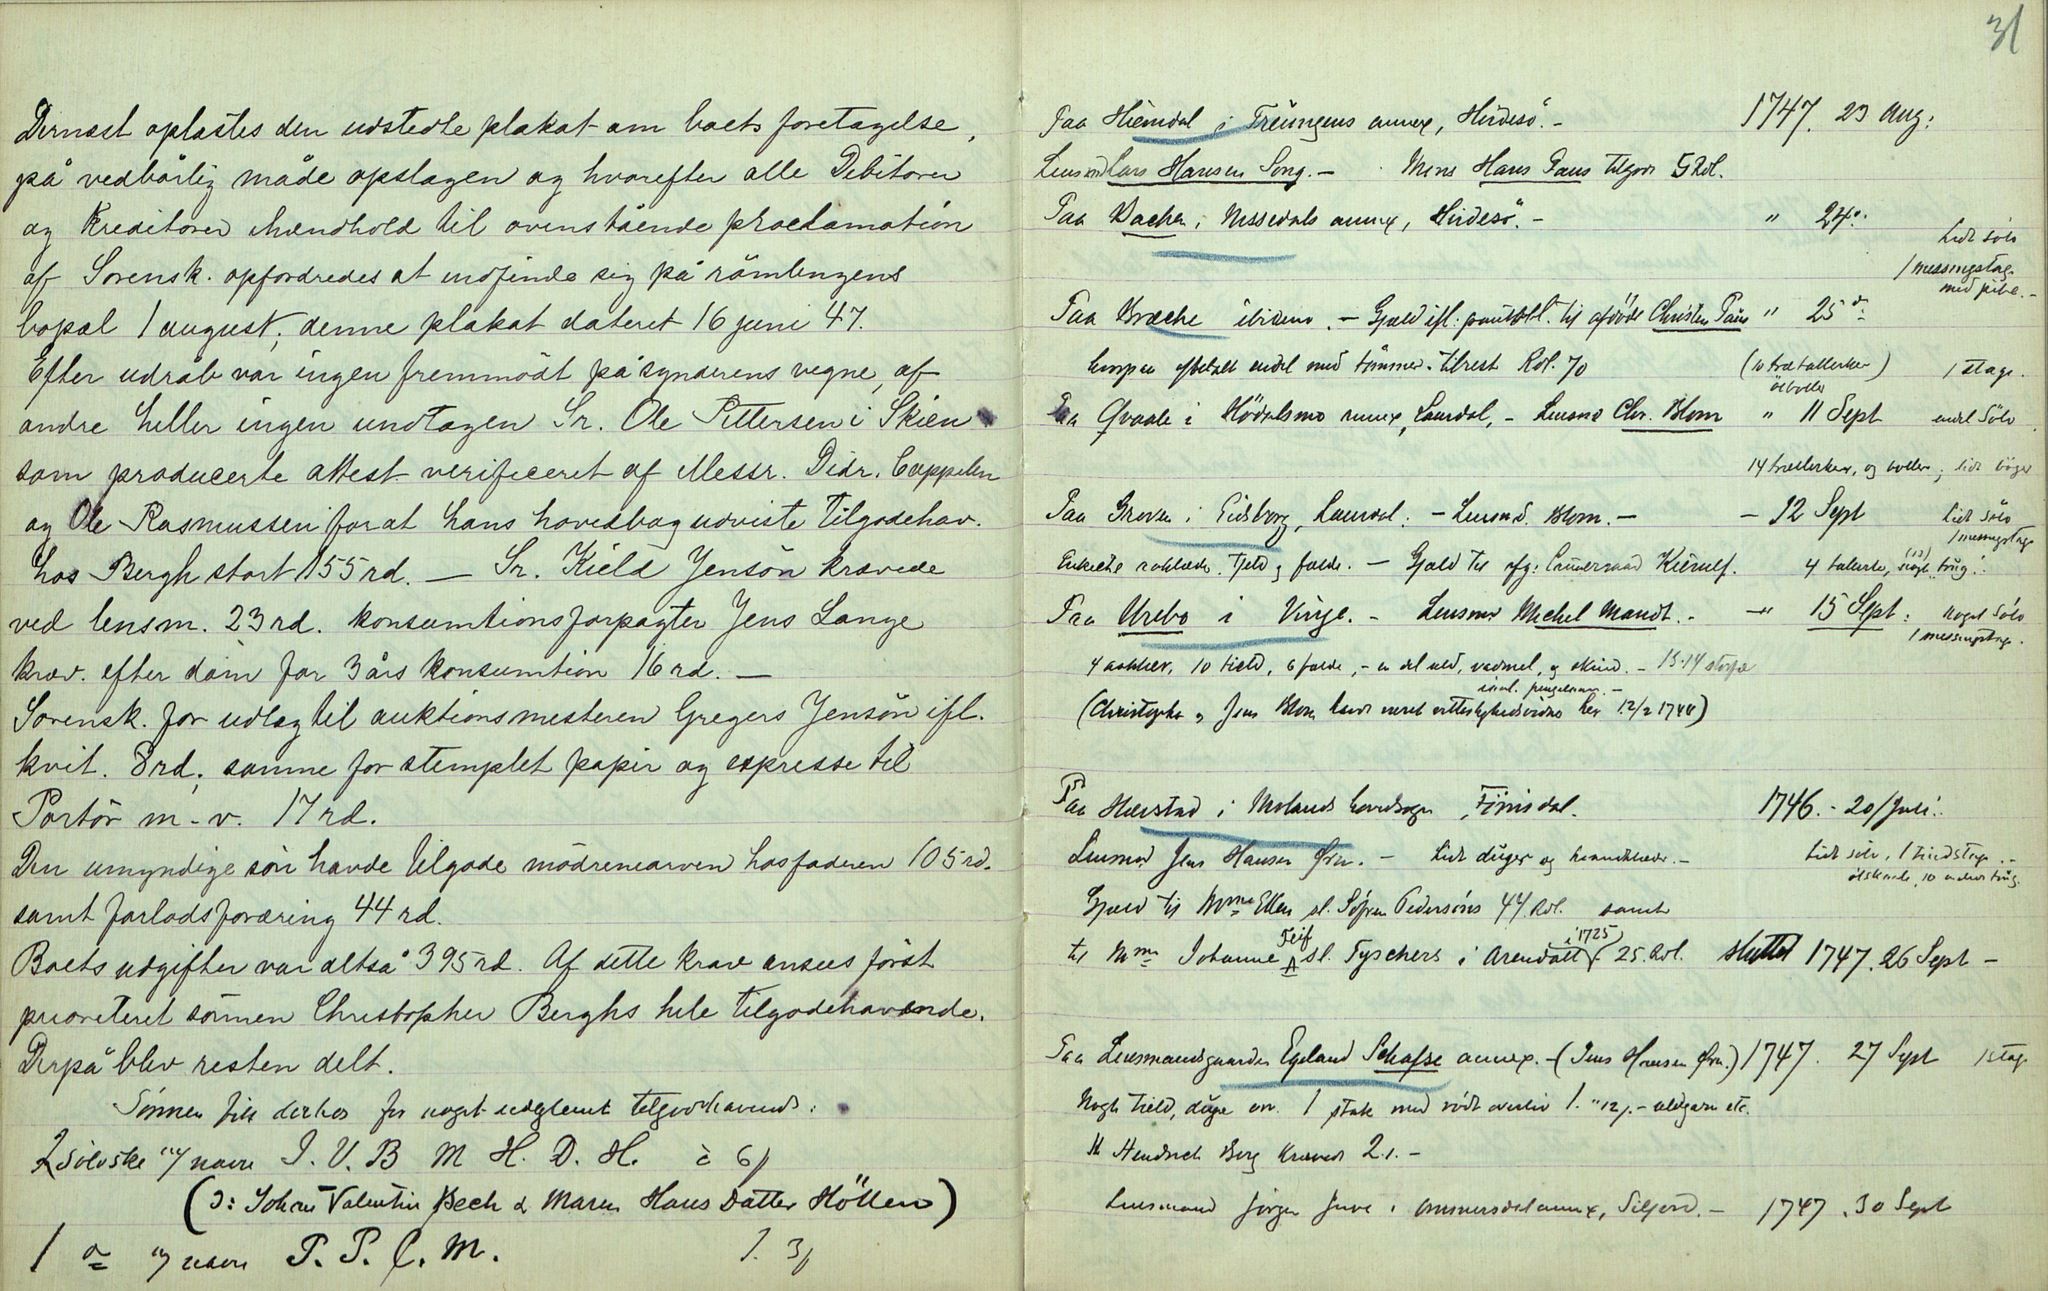 Dernæst oplæstes den udstedte plakat om boets foretagelse,
på vedbörlig måde opslagen og hvorefter alle Debitorer
og Kreditorer i henhold til ovenstående proclamation
af Sorensk. opfordredes at indfinde sig på römlingens
bopæl 1 august, denne plakat dateret 16 juni 47.
Efter udråb var ingen fremmödt på synderens vegne, af
andre heller ingen undtagen Sr. Ole Pettersen i Skien
som producerte attest verificeret af Messr. Didr. Cappelen
og Ole Rasmussen for at hans hovedbog udviste Tilgodehav.
hos Bergh stort 155 rd. — Sr. Kield Jensön krævede
ved lensm. 23 rd. konsumtionsforpagter Jens Lange
kræv. efter dom for 3 års konsumtion 16 rd. —
Sorensk. for udlæg til auktionsmesteren Gregers Jensön ifl.
kvit. 8 rd, samme for stemplet papir og expresse til
Portör m. v. 17 rd.
Den umyndige sön havde tilgode mödrenearven hos faderen 105 rd.
samt forlodsforæring 44 rd.
Boets udgifter var altså 395 rd. Af dette krav ansees först
prioriteret sönnen Christopher Berghs hele tilgodehavende.
Derpå blev resten delt.
Sönnen fik derhos for noget udglemt tilgodehavende:
2 sölvske m/ navn I. V. B M H. D. H. à 6/
(ɔ: Johan Valentin Bech & Maren Hans Datter Höllen)
1 do m/ navn P. P. C. M. 1. 3/
31
Paa Hiemdal i Treungens annex, Hvidesö. - 1747. 23 Aug:
Lensmd Lars Hansen Song. - Mons Hans Paus tilgode 5 Rdl.
Paa Bachen i Nissedals annex, Hvidesö. - " 24.:
Lidt sölv
1 messingstag.
med pibe. -
Paa Bræche ibidem. - Gjæld ifl. pantobl. til afdöde Christen Paus " 25 d:
hvorpaa afbetalt endel med tömmer. tilrest Rdl. 70 (10 trætallerker) 1 stage.
ölboller
Paa Qvaale i Hödalsmo annex, Laurdal, - Lensmd Chr. Blom " 11 Sept endel Sölv
14 tallerker, og boller, lidt böger
Paa Groven i Eidsborg, Laurdal: - Lensmd. Blom. - - 12 Sept Lidt sölv
1 messingstage
Enkelte aaklæder. Tjeld og fælde. - Gjæld til afg: Cancerraad Kierulf. 4 tallerk, (12) nogle trug:
Paa Urebo i Vinje. - Lensmd Michel Mandt. - -" 15 Sept: noget Sölv
1 messingstage.
4 aaklær, 10 tield, 6 fælde, - en del uld, vadmel, og skind. - 13-14 storfæ
saml. pengelaan. -
(Christopher og Jens Blom havde været vitterlighedsvidne her 12/2 1744)
Paa Haustad i Molands hovedsogn, Fÿrisdal. 1746 - 20/Juli:
Lensmd Jens Hansen Örn. - Lidt duger og haandklæder. - Lidt sölv, 1 tindstage. -
Gjæld til Mme Ellen sl. Söfren Pedersöns 44 Rdl. samt
til Mme Johanne Feif sl. Tyschers i Arendall (i 1725) 25. Rdl. sluttet 1747. 26 Sept -
Paa Lensmandsgaarden Egeland Schafse annex. - (Jens Hansen Örn.) 1747. 27 Sept 1 stage
Nogle tield, duge m. 1 stak med rödt overliv 1. " 12/. - uldgarn etc.
Hr Hendrich Berg krævede 2. 1. -
Lensmand Jörgen Juve i Ammersdal annex, Siljord. - 1747. 30 Sept